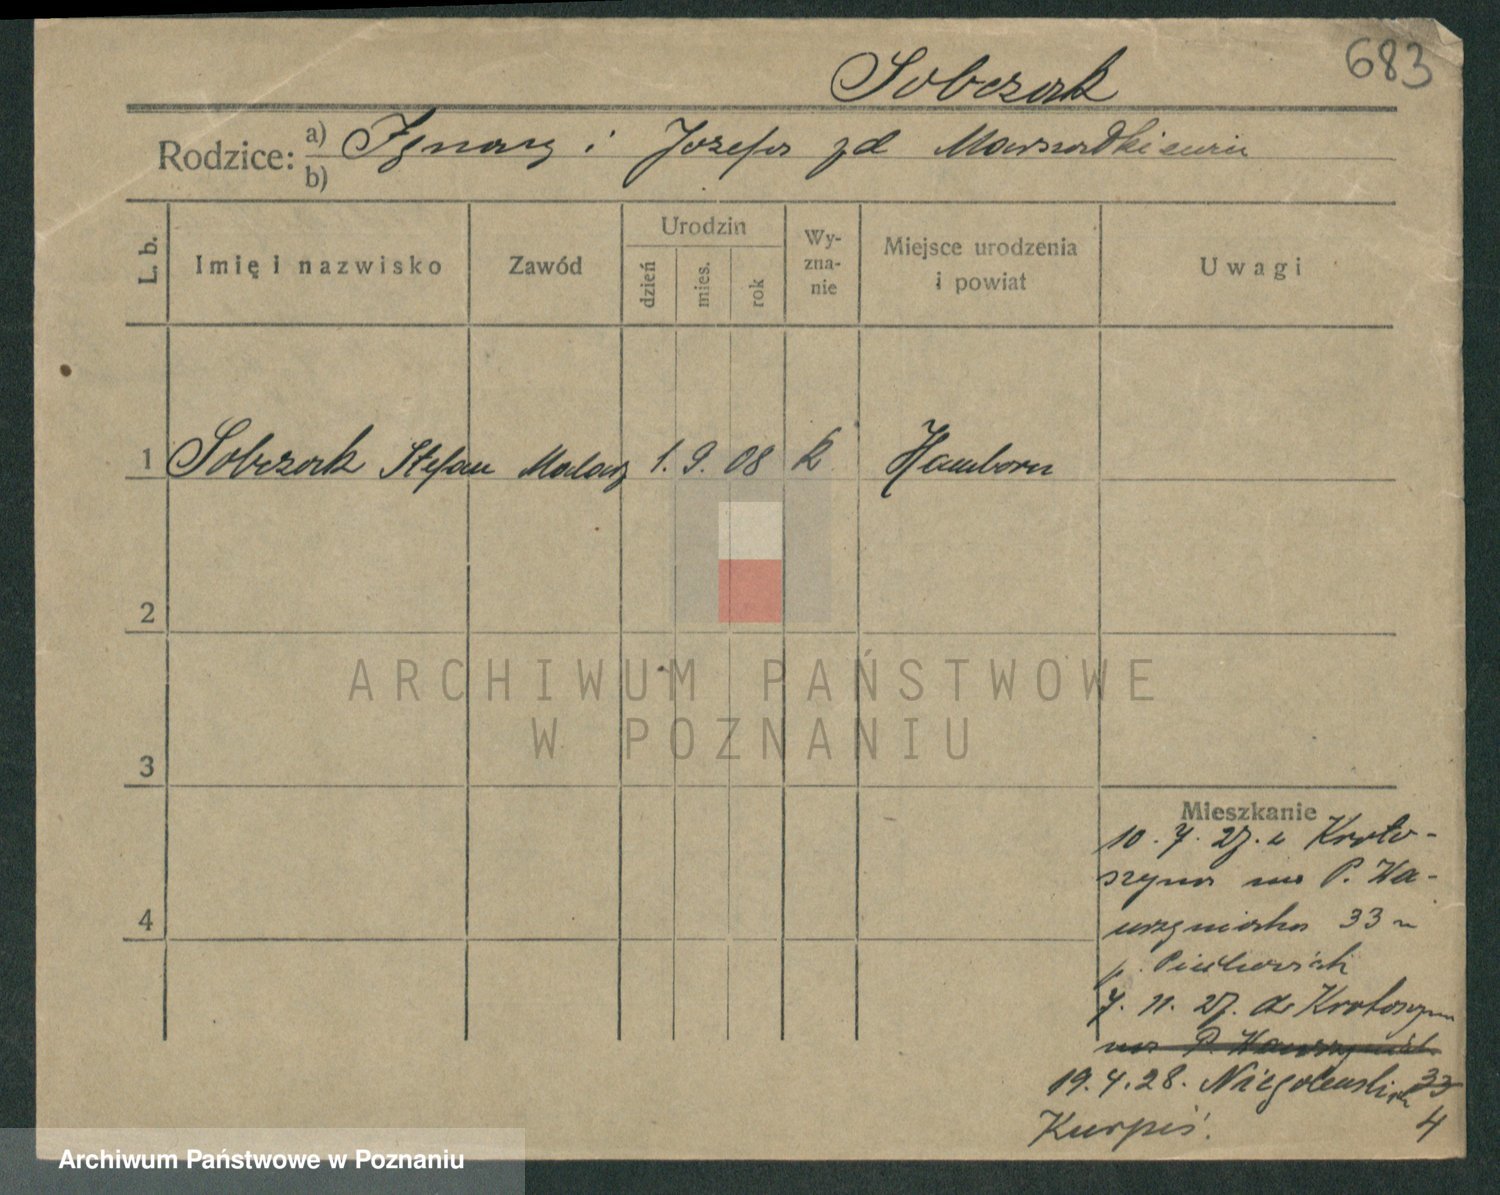 683
Sobczak
Rodzice: a) Ignacy i Józefa zd
b)
L. b.
Imię i nazwisko
Zawód
Urodzin
dzień
mies.
rok
Wy-
zna-
nie
Miejsce urodzenia
i powiat
Uwagi
1 Sobczak Stefan Malarz 1. 9. 08 k Hamborn
2
3
4
ARCHIWUM PAŃSTWOWE
W POZNANIU
Mieszkanie
10. 7. 27. z Kroto-
szyna na P. Wa-
wrzyniaka 33 u
p.
7. 11. 27. do Krotoszyna
na P. Wawrzyniak 33
19. 4. 28. Niegolewskich 4
Kurpisz.
Archiwum Państwowe w Poznaniu